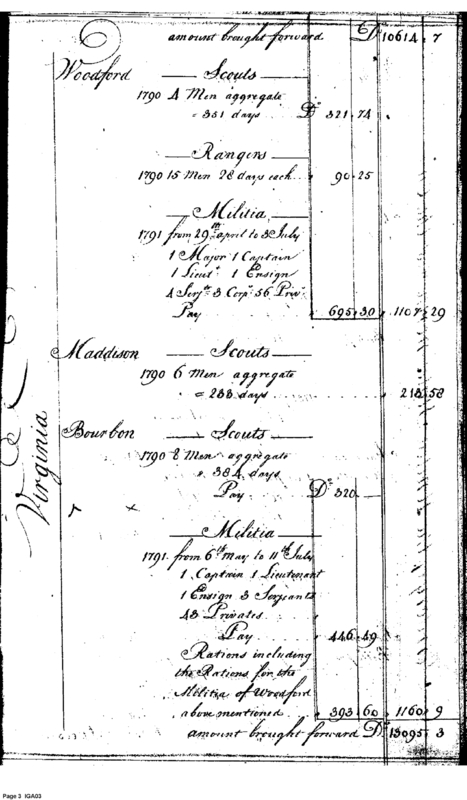 amount brought forward Ds 10614 . 7
Woodford — Scouts —
1790 4 Men aggregate
= 351 days . . Ds 321 . 74
— Rangers —
1790 15 Men 28 days each . . 90 . 25
— Militia —
1791 from 29th april to 3 July
1 Major 1 Captain
1 Lieut. 1 Ensign
4 Serjts 3 Corpl 56 Privs
Pay 695 . 30 1107 . 29
Maddison — Scouts —
1790 6 Men aggregate
= 233 days . . . . . . . . . 213 . 58
Virginia
Bourbon — Scouts —
1790 8 Men aggregate
= 384 days
Pay Ds 320 . —
— Militia —
1791 from 6th May to 11th July
1 Captain 1 Lieutenant
1 Ensign 3 Serjeants
43 Privates
Pay 446 . 49
Rations including
the Rations for the
Militia of Woodford
above mentioned . . 393 . 60 1160 . 9
amount brought forward Ds 13095 . 3
Page 3 IGA03